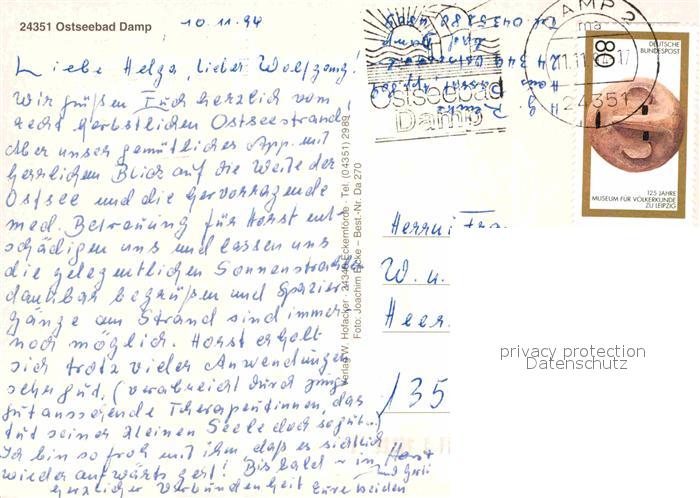 24351 Ostseebad Damp
10.11.94
Liebe Helga, lieber Wolfgang!
Wir grüßen Euch herzlich vom
recht herbstlichen Ostseestrand.
Aber unser gemütliches App. mit
herrlichem Blick auf die Weite der
Ostsee und die hervorragende
med. Betreuung für Horst ent-
schädigen uns und lassen uns
die gelegentlichen Sonnenstrahlen
dankbar begrüßen und Spazier-
gänge am Strand sind immer
noch möglich. Horst erholt
sich trotz vieler Anwendungen
sehr gut, (verabreicht durch junge
gutaussehende Therapeutinnen, das
tut seiner kleinen Seele doch so gut..)
Ich bin so froh mit ihm, daß es sichtlich
wieder aufwärts geht! Bis bald – in
herzlicher Verbundenheit Eure beiden
Horst
und
Verlag W. Hofacker · 24340 Eckernförde · Tel. (04351) 2989
Foto: Joachim Eicke – Best.-Nr. Da 270
Ostseebad
Damp
DAMP 2
24351
80
DEUTSCHE
BUNDESPOST
125 JAHRE
MUSEUM FÜR VÖLKERKUNDE
ZU LEIPZIG
Herrn
W. u.
Heer
35
privacy protection
Datenschutz